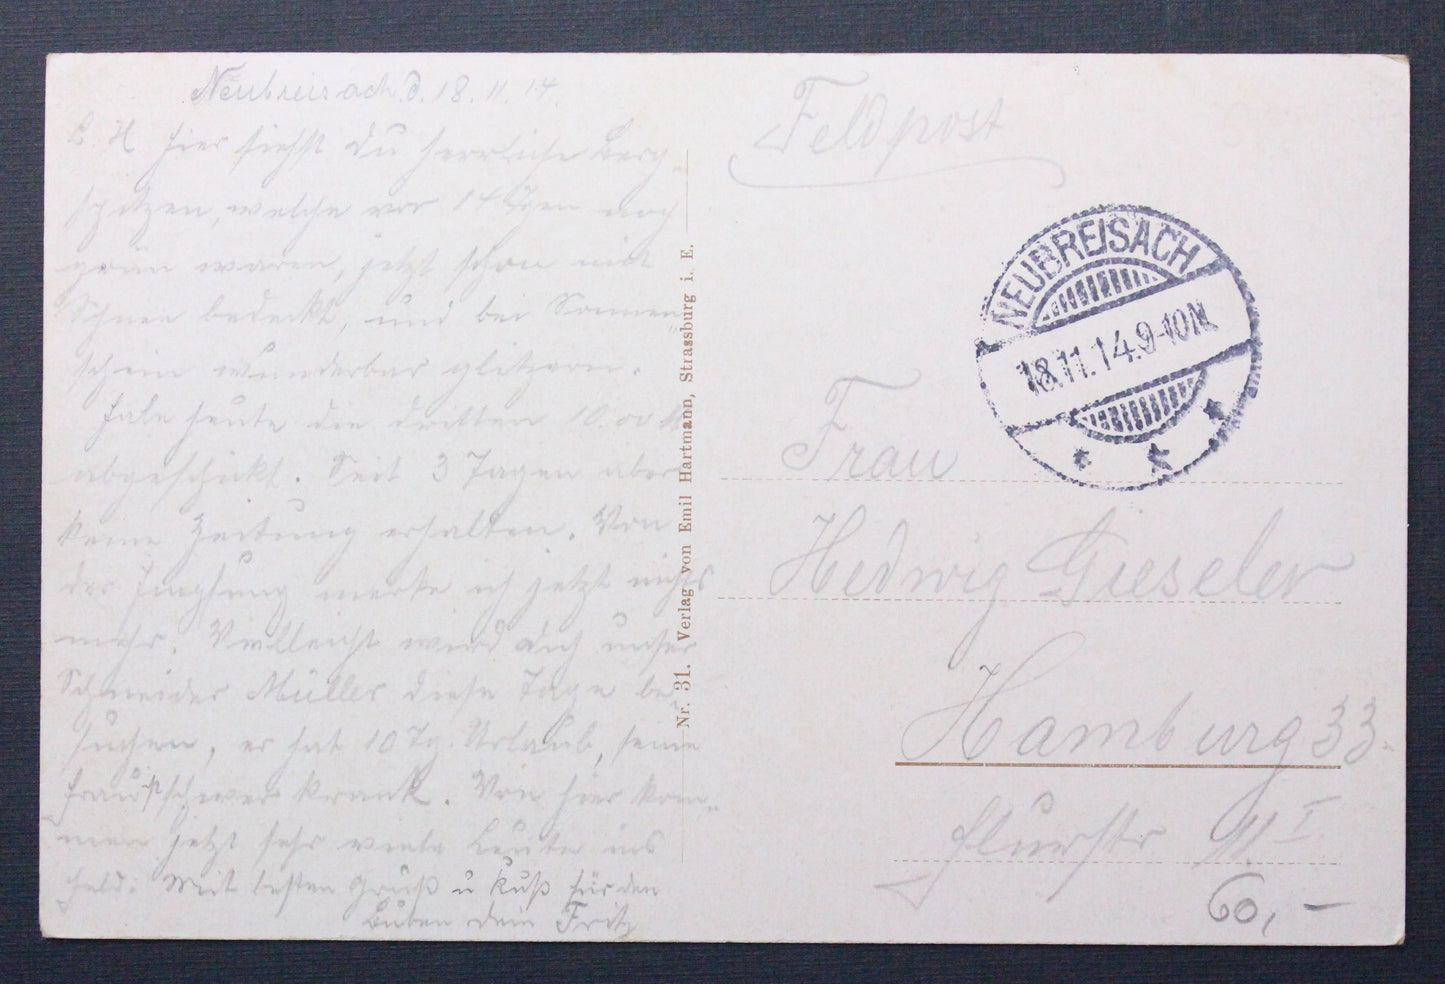 Neubreisach d. 18.11.14.
L. H. Hier siehst Du herrliche Berg-
spitzen, welche vor 14 Tagen noch
grün waren, jetzt schon mit
Schnee bedeckt, und bei Sonnen-
schein wunderbar glitzern.
Habe heute den dritten 10.00 M
abgeschickt. Seit 3 Tagen aber
keine Zeitung erhalten. Von
der Impfung merke ich jetzt nichts
mehr. Vielleicht wird Dich unser
Schneider Müller diese Tage be-
suchen, er hat 10 Tg. Urlaub, seine
Frau ist schwer krank. Von hier kom-
men jetzt sehr viele Leute ins
Feld. Mit besten Gruß u Kuß für den
Buben Dein Fritz
Nr. 31. Verlag von Emil Hartmann, Strassburg i. E.
Feldpost
NEUBREISACH
18.11.14.9-10N.
Frau
Hedwig Gieseler
Hamburg 33.
Flurstr
I.
60,-